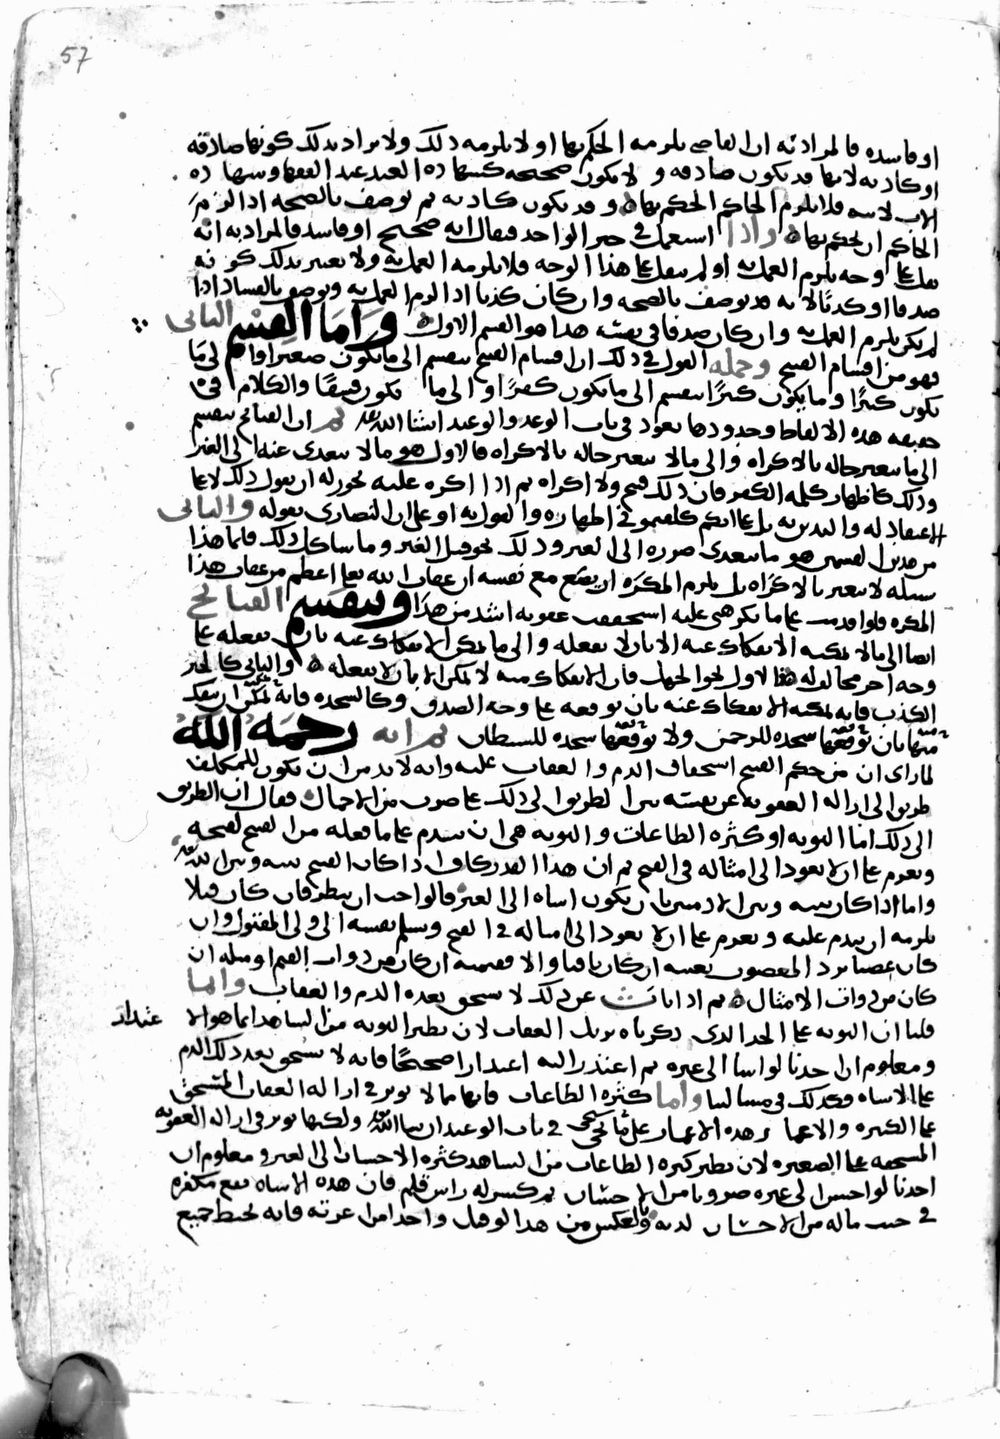 57
او فاسده فالمراد به ان القاضي يلزمه الحكم بها او لا يلزمه ذلك ولا يراد بذلك كونها صادقه
او كاذبه لانها قد تكون صادقه ولا تكون صحيحه كشهاده العبد عند الفقها وشهاده
الاب لابنه فلا يلزم الحاكم الحكم بها وقد تكون كاذبه ثم توصف بالصحه اذا لزم
الحاكم ان يحكم بها واذا استعمل في خبر الواحد فيقال انه صحيح او فاسد فالمراد به انه
نقل على وجه يلزم العمل به او لم ينقل على هذا الوجه فلا يلزمه العمل به ولا يعتبر بذلك كونه
صدقا او كذبا لانه قد يوصف بالصحه وان كان كذبا اذا لزم العمل به ويوصف بالفساد اذا
لم يكن يلزم العمل به وان كان صدقا في نفسه هذا هو القسم الاول واما القسم الثاني
فهو من اقسام القبيح وجمله القول في ذلك ان اقسام القبيح ينقسم الى ما يكون صغيرا والى ما
يكون كبيرا وما يكون كبيرا ينقسم الى ما يكون كفرا والى ما يكون فسقا والكلام في
حقيقه هذه الالفاظ وحدودها يعود في باب الوعد والوعيد ان شا الله تعالى ثم ان القبائح ينقسم
الى ما يتغير حاله بالاكراه والى ما لا يتغير حاله بالاكراه فالاول هو ما لا يتعدى عنه الى الغير
وذلك كاظهار كلمه الكفر فان ذلك قبيح ولا اكراه ثم اذا اكره عليه يجوز له ان يقول ذلك لا على
الاعتقاد له والتدين به بل على انكم كلفتموني اظهاره والقول به او على ان النصارى يقوله والثاني
من هذين القسمين هو ما يتعدى ضرره الى الغير وذلك نحو قتل الغير وما شاكل ذلك فما هذا
سبيله لا يتغير بالاكراه بل يلزم المكره ان يضع مع نفسه ان عقاب الله تعالى اعظم من عقاب هذا
المكره فلو اقدمت على ما يكرهني عليه استحققت عقوبه اشد من هذا وينقسم القبائح
ايضا الى ما لا يمكنه الانفكاك عنه الا بان لا يفعله والى ما يمكن الانفكاك عنه بان يفعله على
وجه اخر مخالف له فالاول نحو الجهل فان الانفكاك منه لا يمكن الا بان لا يفعله والثاني كالخبر
الكذب فانه يمكنه الانفكاك عنه بان يوقعه على وجه الصدق وكالسجده فانه يمكن ان ينفك
منها بان يوقعها سجده للرحمن ولا يوقعها سجده للشيطان ثم انه رحمه الله
لما راى ان من حكم القبيح استحقاق الذم والعقاب عليه وانه لا بد من ان يكون للمكلف
طريق الى ازاله العقوبه عن نفسه بين الطريق الى ذلك على ضرب من الاجمال فقال ان الطريق
الى ذلك اما التوبه او كثره الطاعات والتوبه هي ان يندم على ما فعله من القبيح لقبحه
ويعزم على ان لا يعود الى امثاله في القبح ثم ان هذا القدر كاف اذا كان القبيح بينه وبين الله تعالى
واما اذا كان بينه وبين الادميين بان يكون اساه الى الغير فالواجب ان ينظر فان كان قتلا
يلزمه ان يندم عليه ويعزم على ان لا يعود الى امثاله في القبح ويسلم نفسه الى ولي المقتول وان
كان غصبا يرد المغصوب بعينه ان كان باقيا والا فقيمته ان كان من ذوات القيم او مثله ان
كان من ذوات الامثال ثم اذا تاب عن ذلك لا يستحق بعده الذم والعقاب وانما
قلنا ان التوبه على الحد الذي ذكرناه يزيل العقاب لان نظير التوبه من الشاهد انما هو الاعتذار
ومعلوم ان احدنا لو اسا الى غيره ثم اعتذر اليه اعتذارا صحيحا فانه لا يستحق بعد ذلك الذم
على الاساه فكذلك في مسالتنا واما كثره الطاعات فانها مما لا يوثر في ازاله العقاب المستحق
على الكبيره هذه الاعصار على ما يجي في باب الوعيد ان شا الله تعالى ولكنها توثر في ازاله العقوبه
المستحقه على الصغيره لان نظير كثره الطاعات من الشاهد كثره الاحسان الى الغير ومعلوم ان
احدنا لو احسن الى غيره ضروبا من الاحسان ثم كسر له راس قلم فان هذه الاساه تقع مكفره
في جنب ماله من الاحسان لديه وبالعكس من هذا لو قتل واحدا من اعزته فانه يحبط جميع